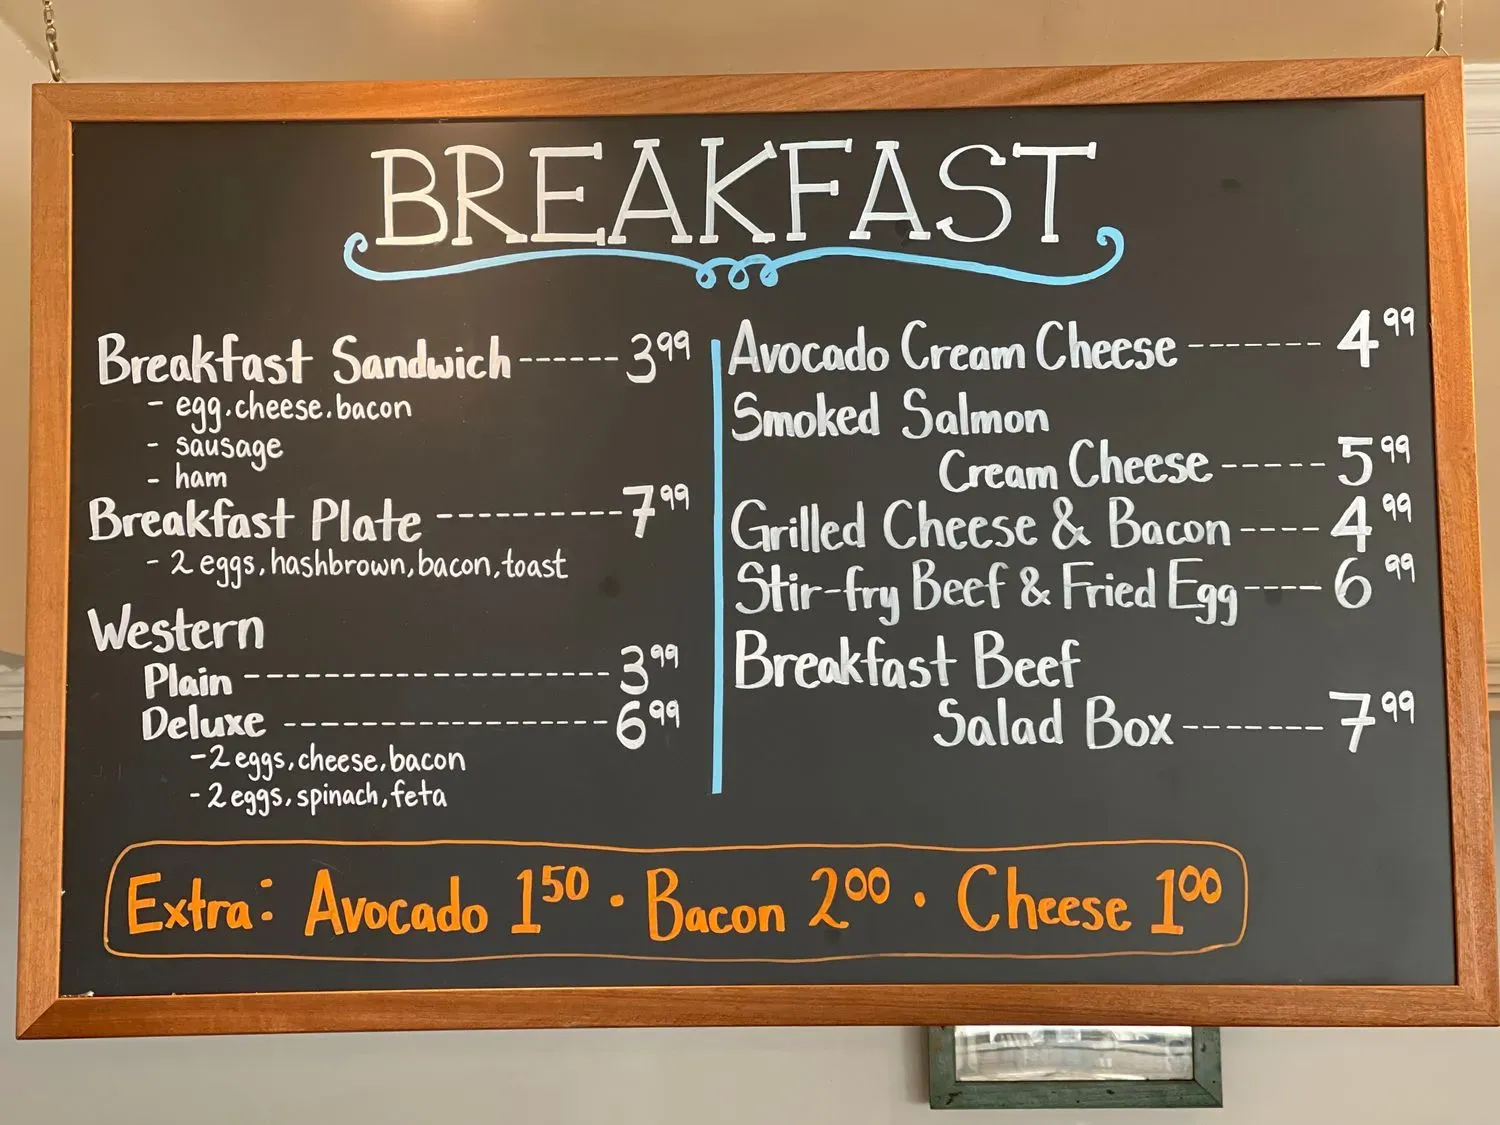 BREAKFAST
Breakfast Sandwich ------ 3.99
- egg, cheese, bacon
- sausage
- ham
Breakfast Plate ---------- 7.99
- 2 eggs, hashbrown, bacon, toast
Western
Plain -------------------- 3.99
Deluxe ------------------ 6.99
- 2 eggs, cheese, bacon
- 2 eggs, spinach, feta
Avocado Cream Cheese ------- 4.99
Smoked Salmon
Cream Cheese ----- 5.99
Grilled Cheese & Bacon ---- 4.99
Stir-fry Beef & Fried Egg ---- 6.99
Breakfast Beef
Salad Box ------- 7.99
Extra: Avocado 1.50 · Bacon 2.00 · Cheese 1.00